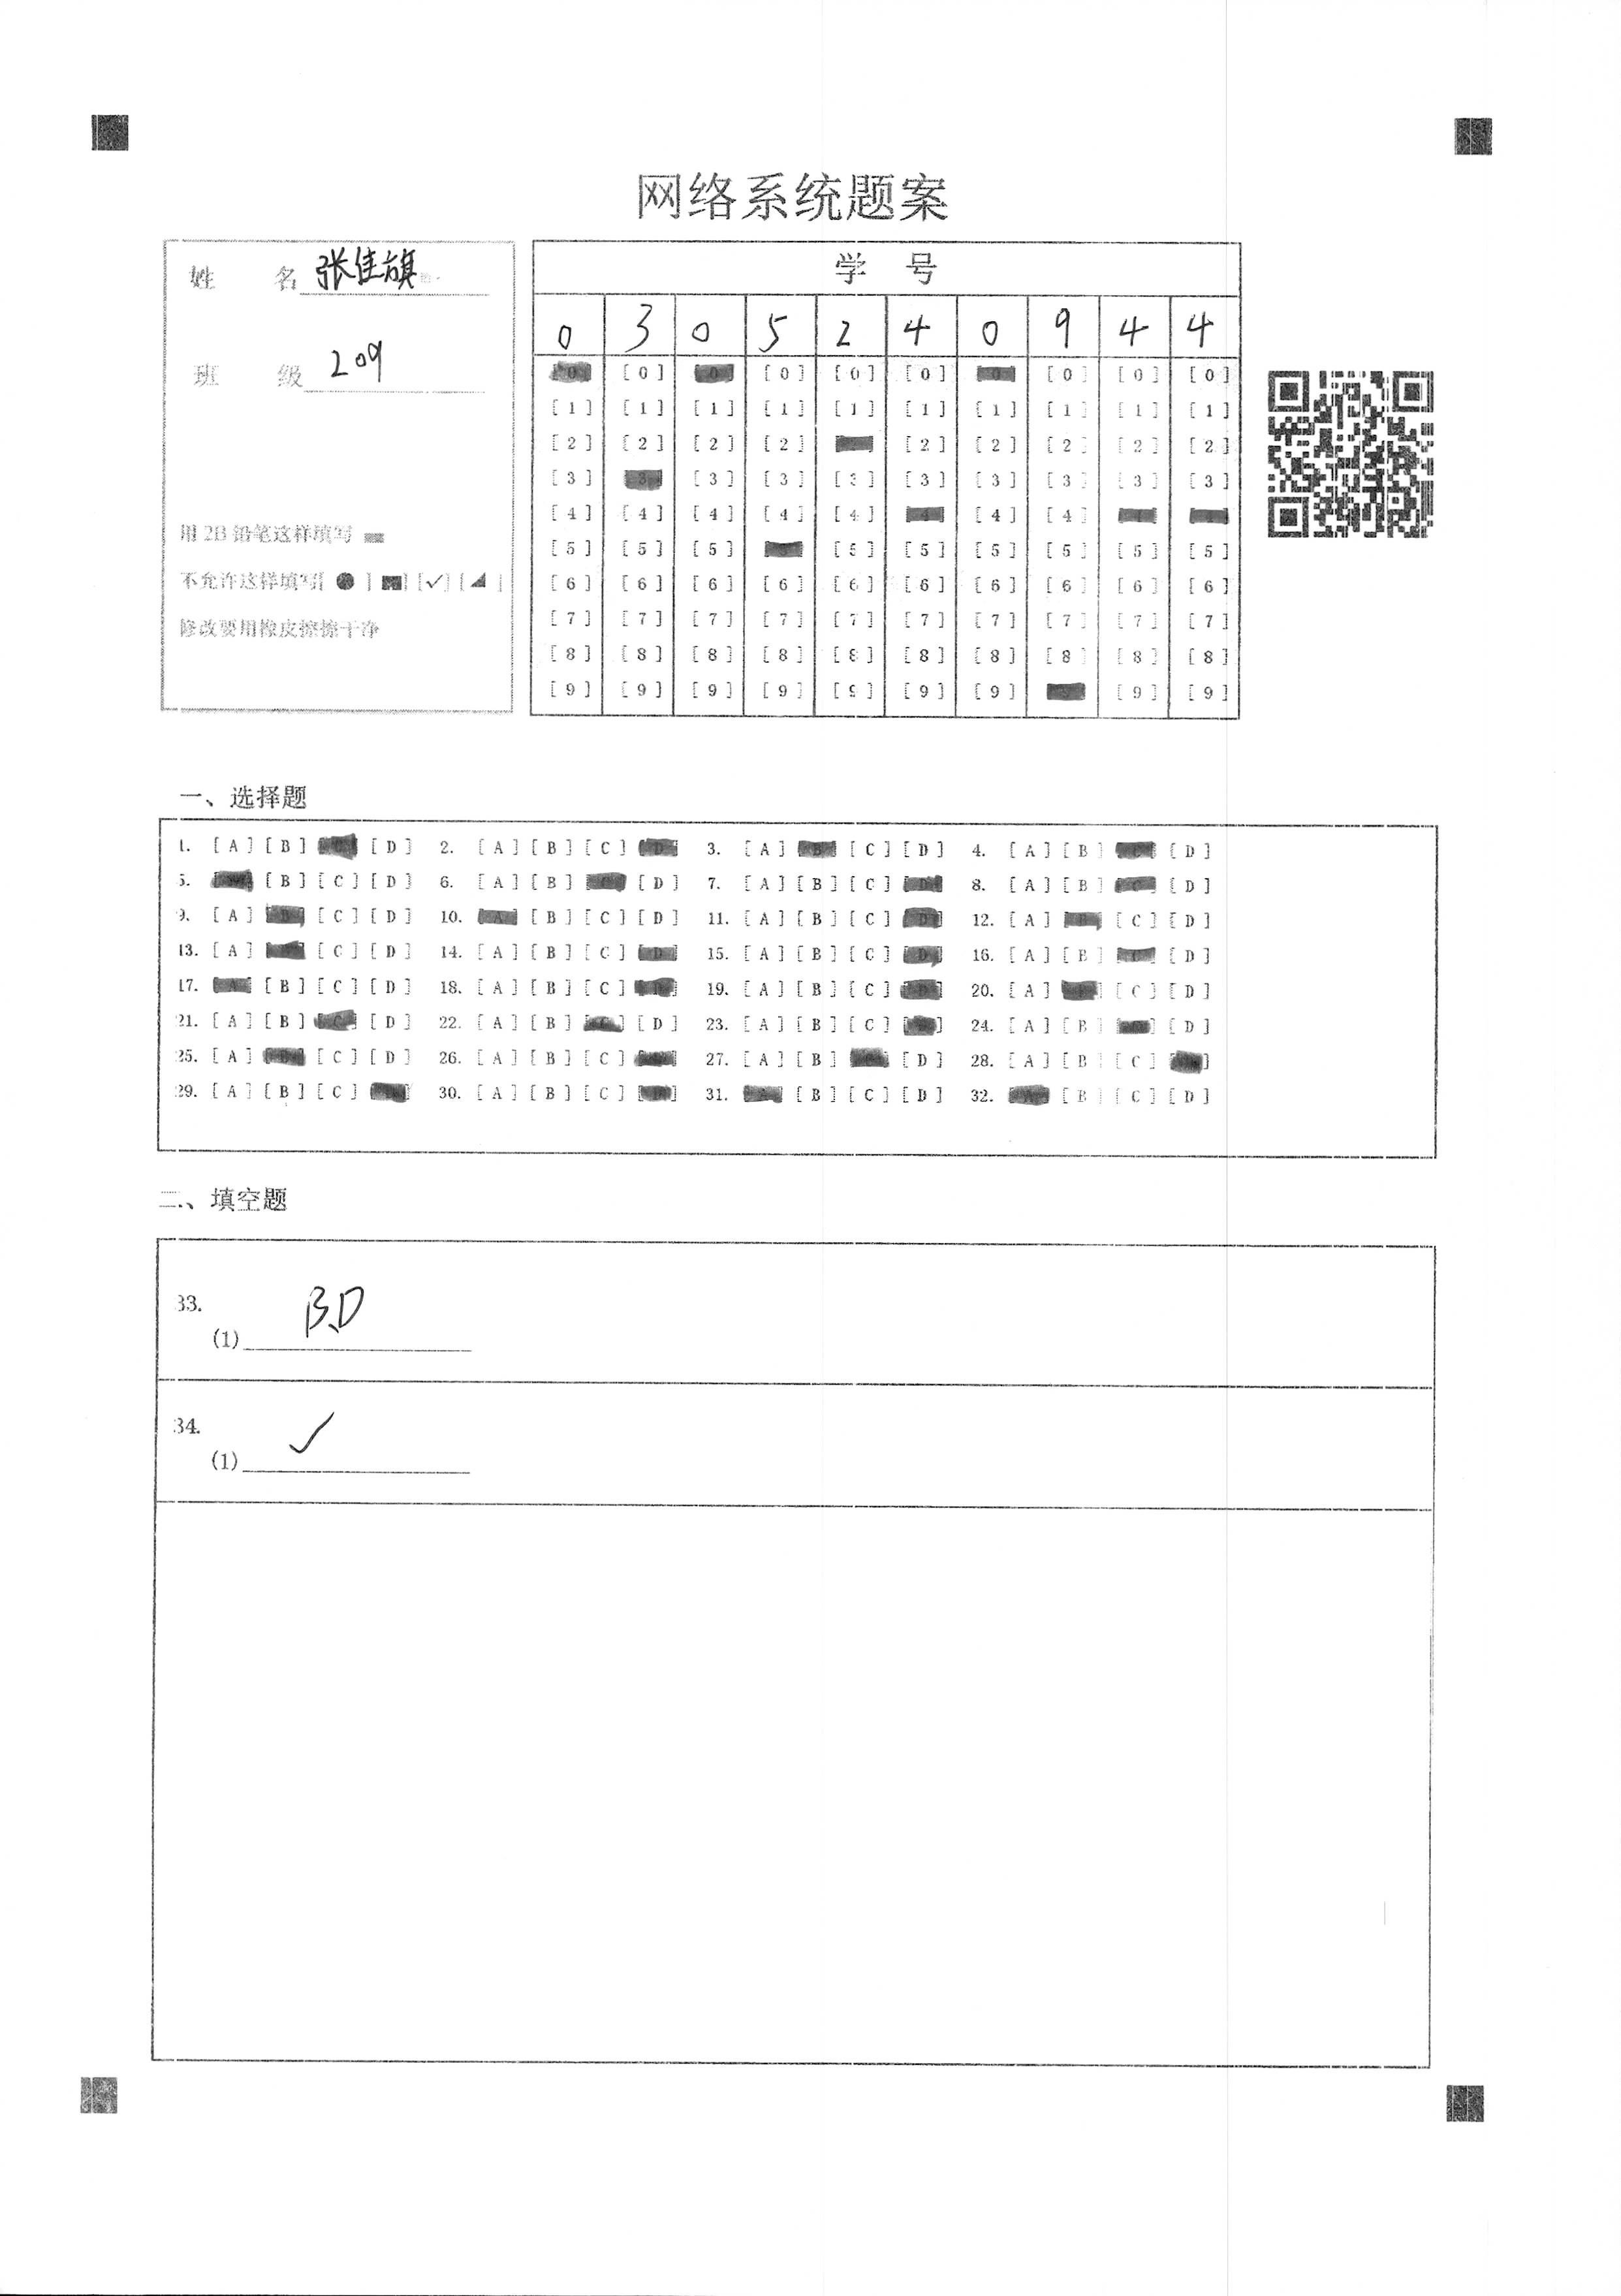 网络系统题案
姓 名 张佳旗
班 级 209
用 2B 铅笔这样填写
不允许这样填写[ ● ] [ ] [✓] [ ]
修改要用橡皮擦擦干净
学 号
0 3 0 5 2 4 0 9 4 4
[0] [0] [0] [0] [0] [0] [0] [0] [0] [0]
[1] [1] [1] [1] [1] [1] [1] [1] [1] [1]
[2] [2] [2] [2] [2] [2] [2] [2] [2]
[3] [3] [3] [3] [3] [3] [3] [3] [3] [3]
[4] [4] [4] [4] [4] [4] [4] [4]
[5] [5] [5] [5] [5] [5] [5] [5] [5]
[6] [6] [6] [6] [6] [6] [6] [6] [6] [6]
[7] [7] [7] [7] [7] [7] [7] [7] [7] [7]
[8] [8] [8] [8] [8] [8] [8] [8] [8] [8]
[9] [9] [9] [9] [9] [9] [9] [9] [9]
一、选择题
1. [A] [B] [C] [D] 2. [A] [B] [C] [D] 3. [A] [B] [C] [D] 4. [A] [B] [C] [D]
5. [A] [B] [C] [D] 6. [A] [B] [C] [D] 7. [A] [B] [C] [D] 8. [A] [B] [C] [D]
9. [A] [B] [C] [D] 10. [A] [B] [C] [D] 11. [A] [B] [C] [D] 12. [A] [B] [C] [D]
13. [A] [B] [C] [D] 14. [A] [B] [C] [D] 15. [A] [B] [C] [D] 16. [A] [B] [C] [D]
17. [A] [B] [C] [D] 18. [A] [B] [C] [D] 19. [A] [B] [C] [D] 20. [A] [B] [C] [D]
21. [A] [B] [C] [D] 22. [A] [B] [C] [D] 23. [A] [B] [C] [D] 24. [A] [B] [C] [D]
25. [A] [B] [C] [D] 26. [A] [B] [C] [D] 27. [A] [B] [C] [D] 28. [A] [B] [C] [D]
29. [A] [B] [C] [D] 30. [A] [B] [C] [D] 31. [A] [B] [C] [D] 32. [A] [B] [C] [D]
二、填空题
33.
(1) B、D
34.
(1) ✓